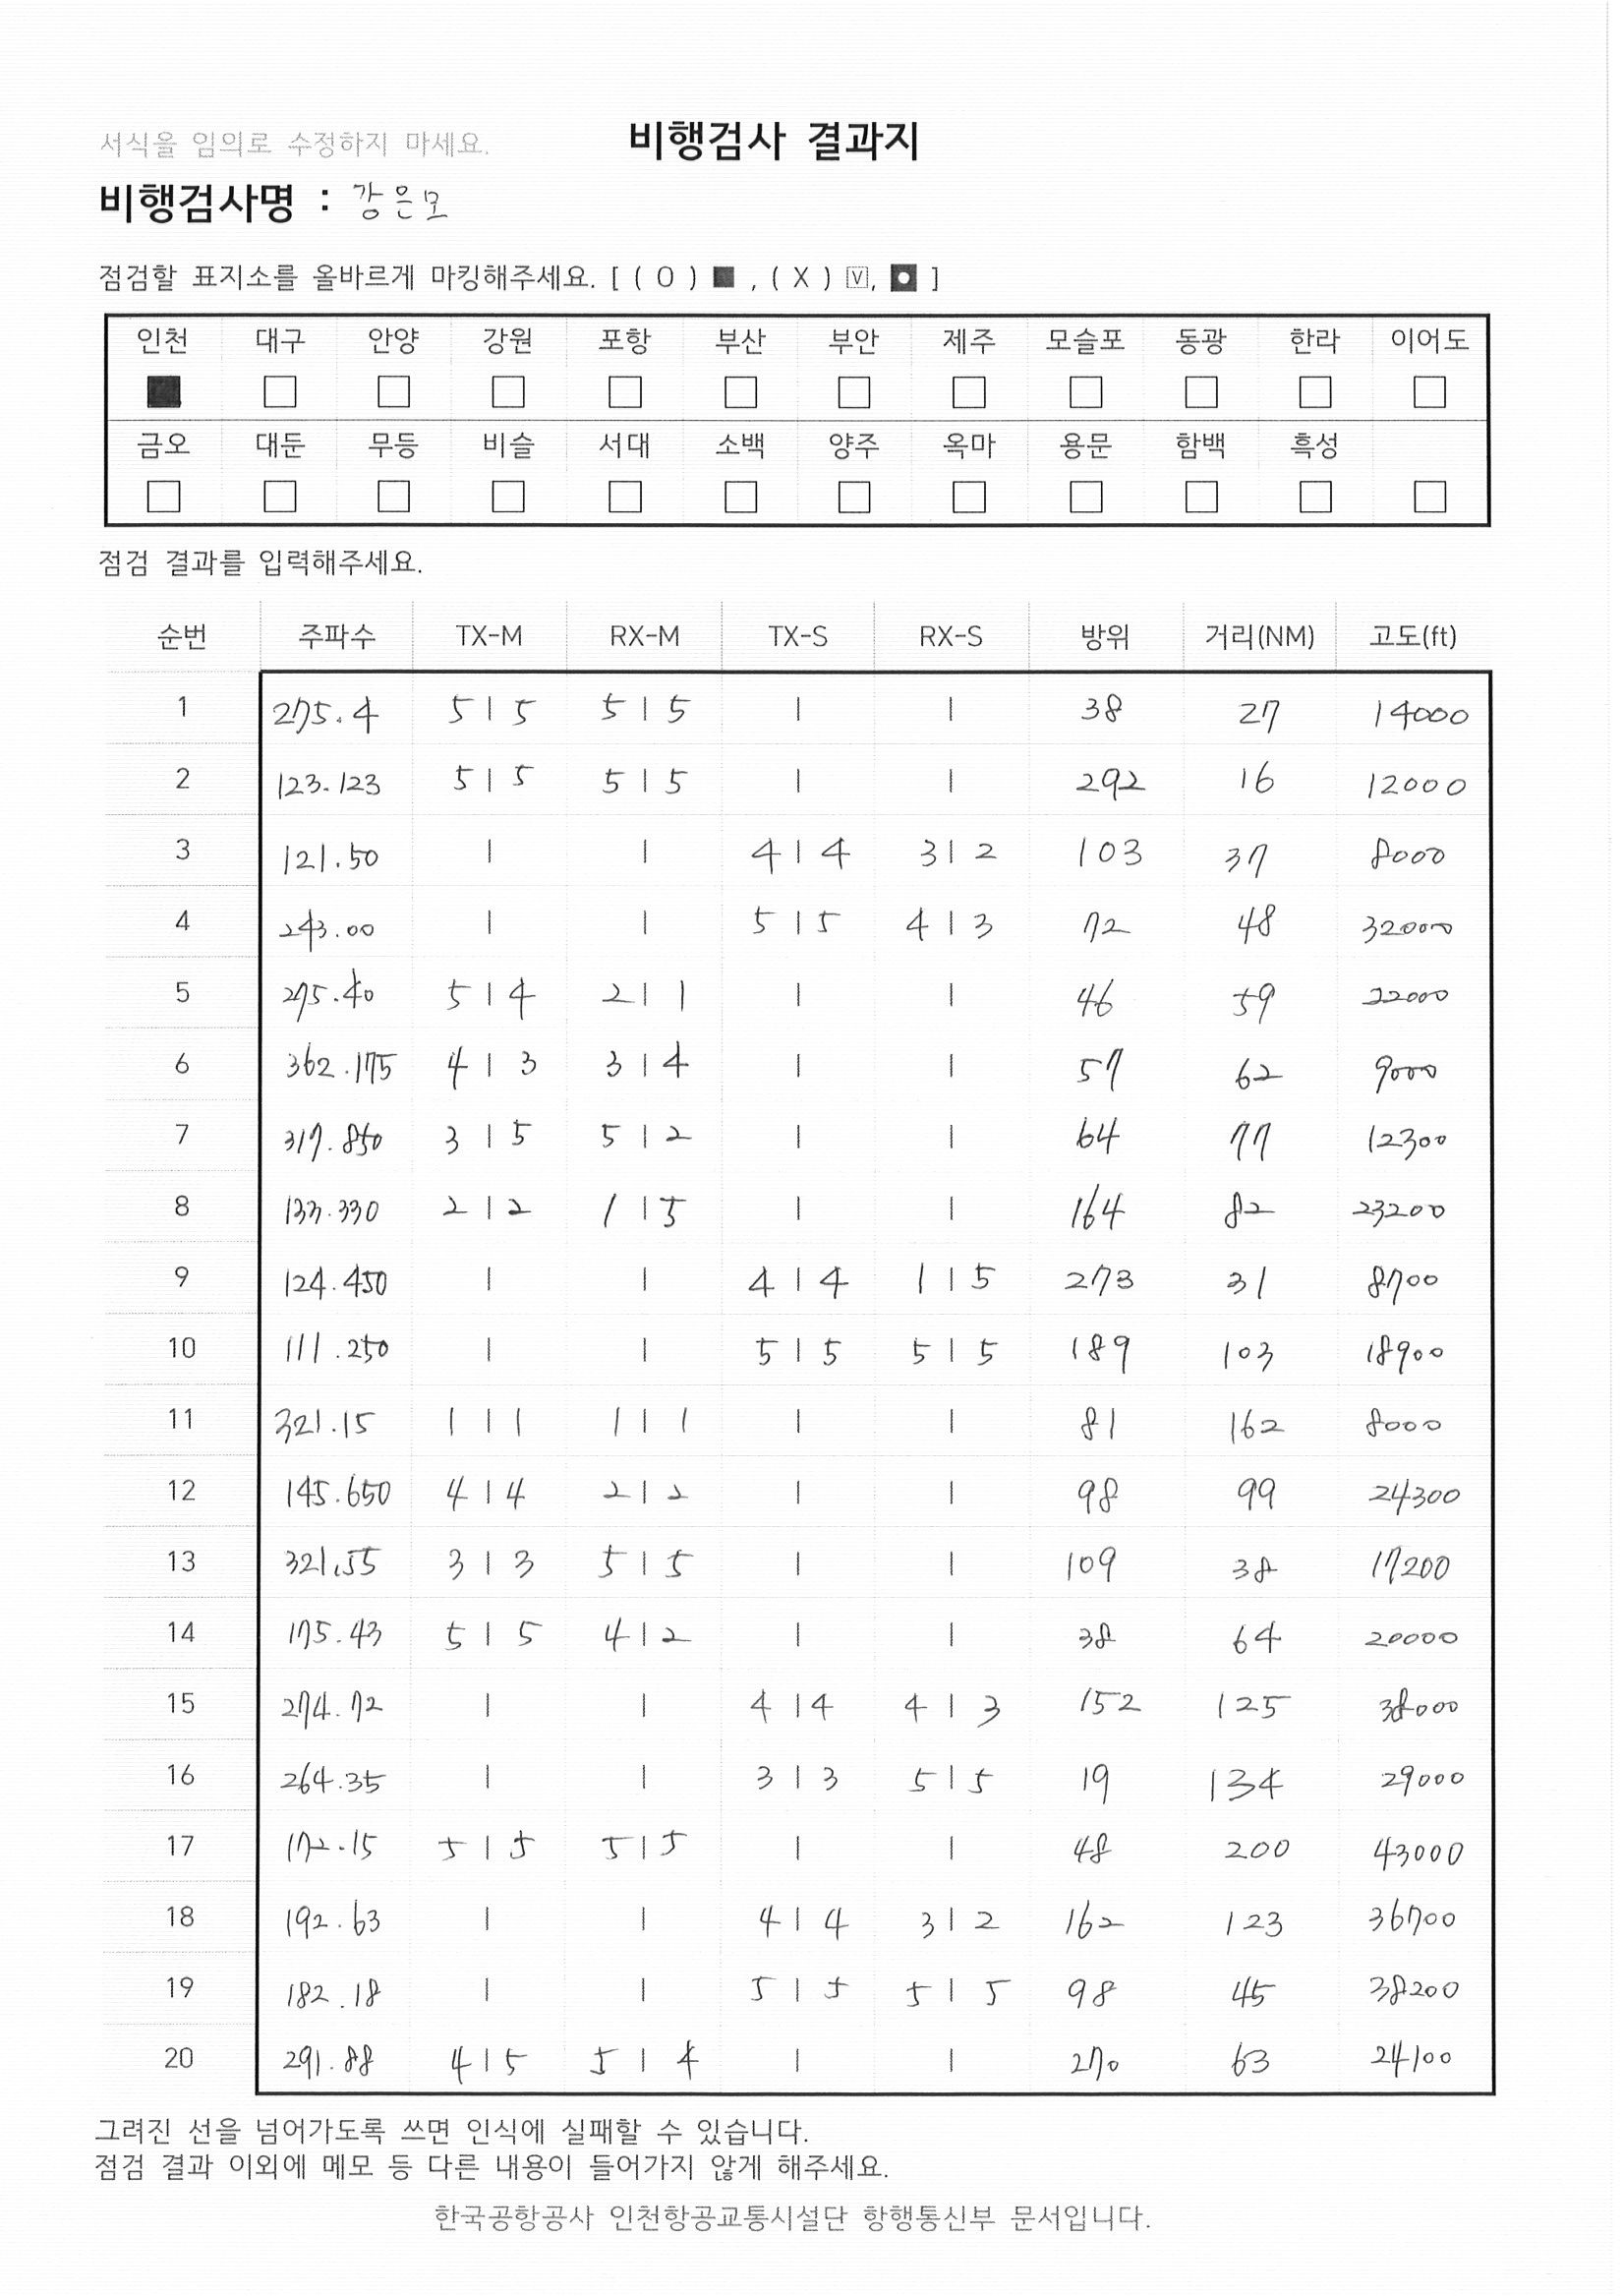 서식을 임의로 수정하지 마세요.
비행검사 결과지
비행검사명 : 강은모
점검할 표지소를 올바르게 마킹해주세요. [ ( O ) ■ , ( X ) ☑, ◘ ]
인천 대구 안양 강원 포항 부산 부안 제주 모슬포 동광 한라 이어도
■ □ □ □ □ □ □ □ □ □ □ □
금오 대둔 무등 비슬 서대 소백 양주 옥마 용문 함백 흑성
□ □ □ □ □ □ □ □ □ □ □ □
점검 결과를 입력해주세요.
순번 주파수 TX-M RX-M TX-S RX-S 방위 거리(NM) 고도(ft)
1 275.4 5 | 5 5 | 5 | | 38 27 14000
2 123.123 5 | 5 5 | 5 | | 292 16 12000
3 121.50 | | 4 | 4 3 | 2 103 37 8000
4 243.00 | | 5 | 5 4 | 3 72 48 32000
5 275.40 5 | 4 2 | 1 | | 46 59 22000
6 362.175 4 | 3 3 | 4 | | 57 62 9000
7 317.850 3 | 5 5 | 2 | | 64 77 12300
8 133.330 2 | 2 1 | 5 | | 164 82 23200
9 124.450 | | 4 | 4 1 | 5 273 31 8700
10 111.250 | | 5 | 5 5 | 5 189 103 18900
11 321.15 1 | 1 1 | 1 | | 81 162 8000
12 145.650 4 | 4 2 | 2 | | 98 99 24300
13 321.55 3 | 3 5 | 5 | | 109 38 17200
14 175.43 5 | 5 4 | 2 | | 38 64 20000
15 274.72 | | 4 | 4 4 | 3 152 125 38000
16 264.35 | | 3 | 3 5 | 5 19 134 29000
17 172.15 5 | 5 5 | 5 | | 48 200 43000
18 192.63 | | 4 | 4 3 | 2 162 123 36700
19 182.18 | | 5 | 5 5 | 5 98 45 38200
20 291.88 4 | 5 5 | 4 | | 270 63 24100
그려진 선을 넘어가도록 쓰면 인식에 실패할 수 있습니다.
점검 결과 이외에 메모 등 다른 내용이 들어가지 않게 해주세요.
한국공항공사 인천항공교통시설단 항행통신부 문서입니다.